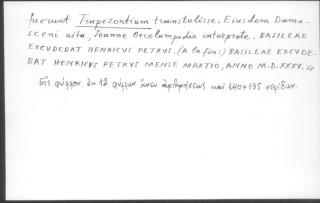 fuerunt Trapezontium transtulisse. Eiusdem Dama-
sceni uita, Joanne Oecolampadio interprete. BASILEAE
EXCUDEBAT HENRICVS PETRVS. (A la fin:) BASILEAE EXCVDE-
BAT HENRICVS PETRVS MENSE MARTIO, ANNO M.D.XXXV.»
Εἰς φύλλον. ἐκ 12 φύλλων ἄνευ ἀριθμήσεως καὶ 140+135 σελίδων.